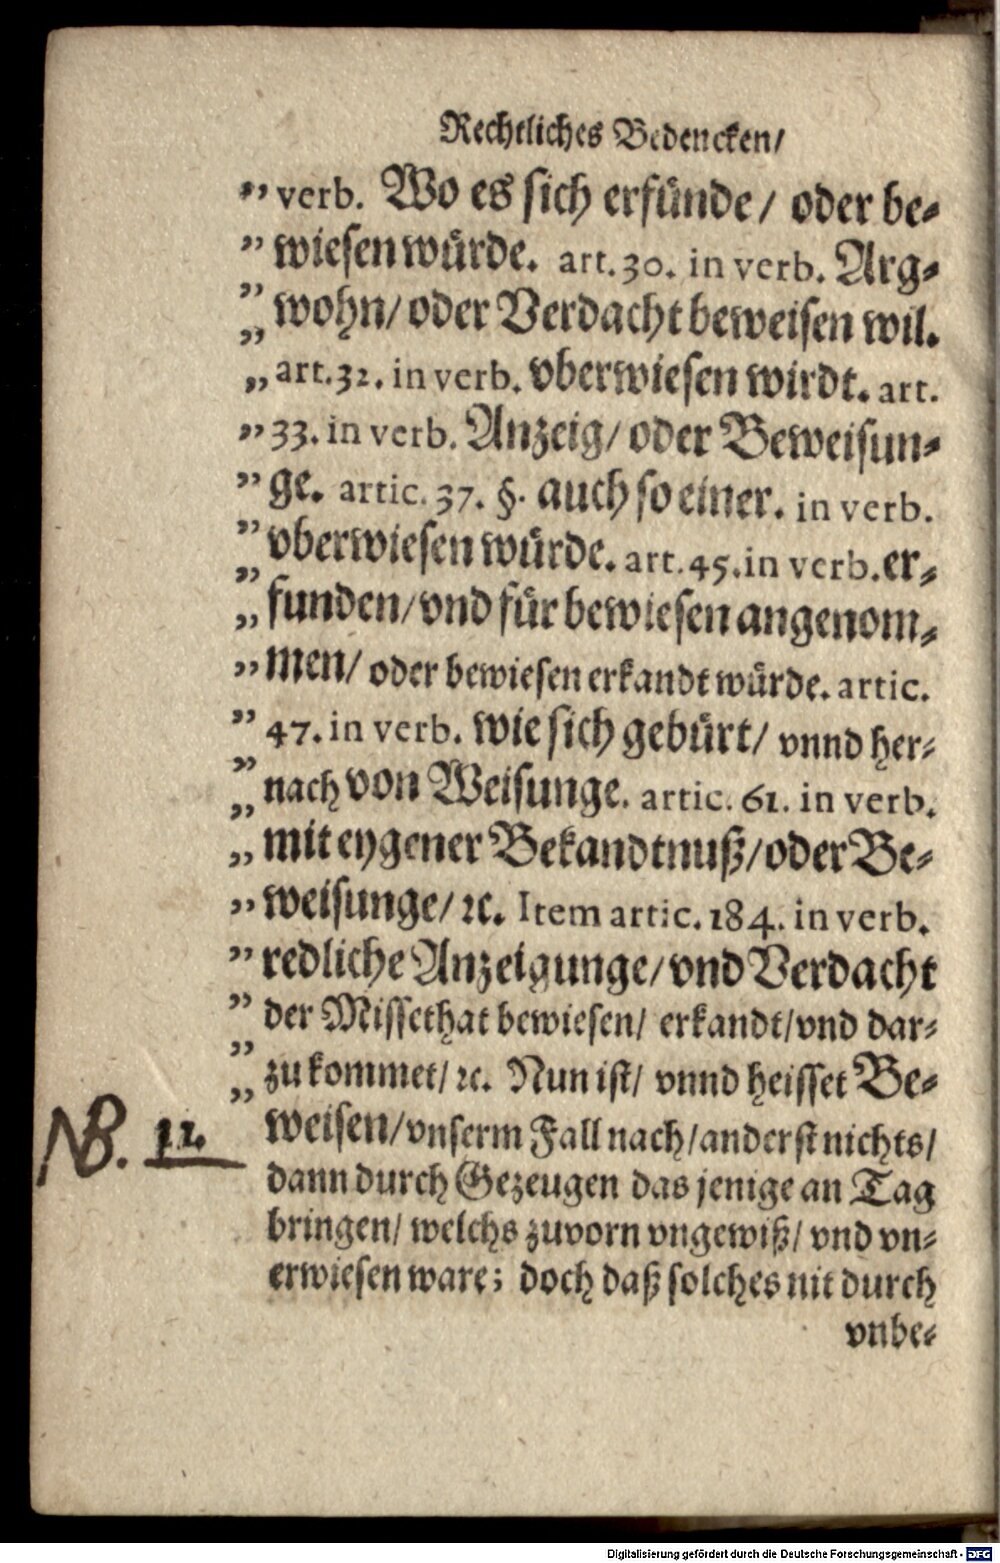 Rechtliches Bedencken/
„ verb. Wo es sich erfünde/ oder be-
„ wiesen würde. art. 30. in verb. Arg-
„ wohn/ oder Verdacht beweisen wil.
„ art. 32. in verb. vberwiesen wirdt. art.
„ 33. in verb. Anzeig/ oder Beweisun-
„ ge. artic. 37. §. auch so einer. in verb.
„ vberwiesen würde. art. 45. in verb. er-
„ funden/ vnd für bewiesen angenom-
„ men/ oder bewiesen erkandt würde. artic.
„ 47. in verb. wie sich gebürt/ vnnd her-
„ nach von Weisunge. artic. 61. in verb.
„ mit eygener Bekandtnuß/ oder Be-
„ weisunge/ ꝛc. Item artic. 184. in verb.
„ redliche Anzeigunge/ vnd Verdacht
„ der Missethat bewiesen/ erkandt/ vnd dar-
„ zu kommet/ ꝛc. Nun ist/ vnnd heisset Be-
NB. 12. weisen/ vnserm Fall nach/ anderst nichts/
dann durch Gezeugen das jenige an Tag
bringen/ welchs zuvorn vngewiß/ vnd vn-
erwiesen ware; doch daß solches nit durch
vnbe-
Digitalisierung gefördert durch die Deutsche Forschungsgemeinschaft - DFG